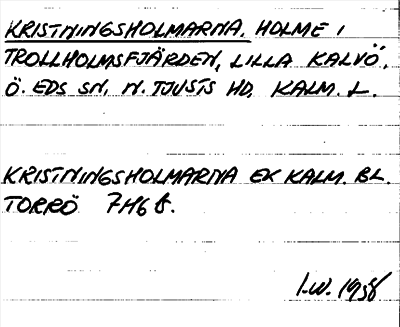 KRISTNINGSHOLMARNA. HOLME I
TROLLHOLMSFJÄRDEN, LILLA KALVÖ,
Ö. EDS SN, N. TJUSTS HD. KALM. L.
KRISTNINGSHOLMARNA EK KALM. BL.
TORRÖ 7H6
I.W. 1958